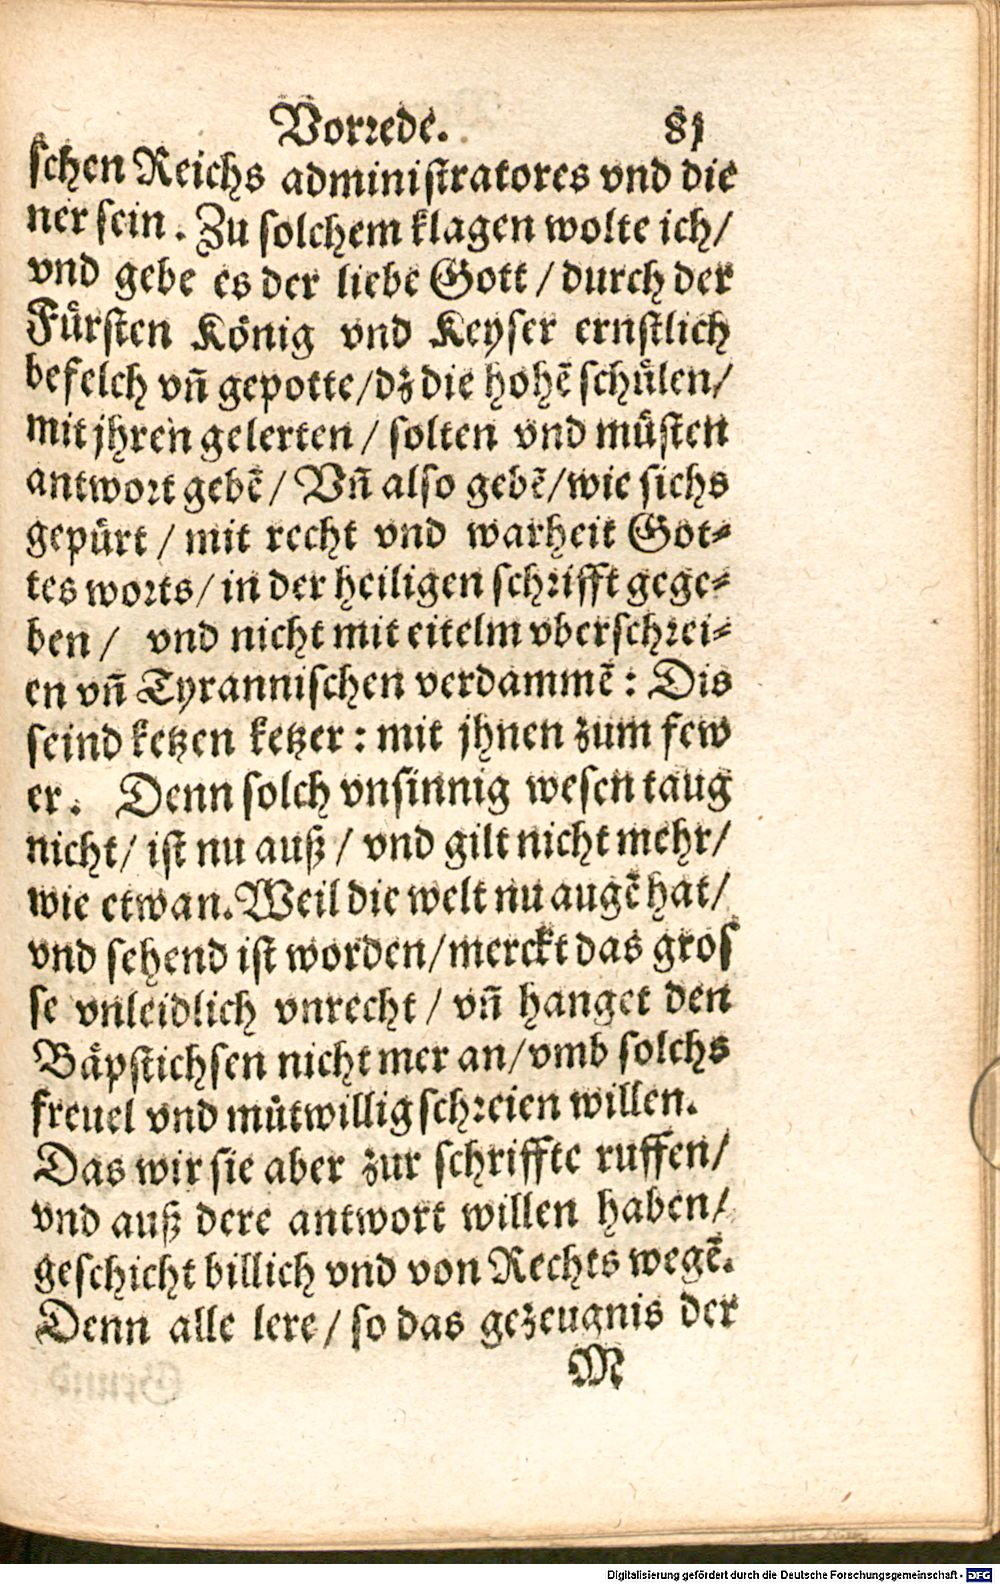 Vorrede. 81
schen Reichs administratores vnd die
ner sein. Zu solchem klagen wolte ich/
vnd gebe es der liebe Gott / durch der
Fürsten König vnd Keyser ernstlich
befelch vñ gepotte/dz die hohẽ schůlen/
mit jhren gelerten / solten vnd müsten
antwort gebẽ / Vñ also gebẽ/wie sichs
gepürt / mit recht vnd warheit Got-
tes worts/ in der heiligen schrifft gege-
ben / vnd nicht mit eitelm vberschrei-
en vñ Tyrannischen verdammẽ : Dis
seind ketzen ketzer : mit jhnen zum few
er. Denn solch vnsinnig wesen taug
nicht/ ist nu auß / vnd gilt nicht mehr/
wie etwan. Weil die welt nu augẽ hat/
vnd sehend ist worden/merckt das gros
se vnleidlich vnrecht / vñ hanget den
Bäpstichsen nicht mer an/vmb solchs
freuel vnd můtwillig schreien willen.
Das wir sie aber zur schriffte ruffen/
vnd auß dere antwort willen haben/
geschicht billich vnd von Rechts wegẽ.
Denn alle lere / so das gezeugnis der
M
Digitalisierung gefördert durch die Deutsche Forschungsgemeinschaft - DFG